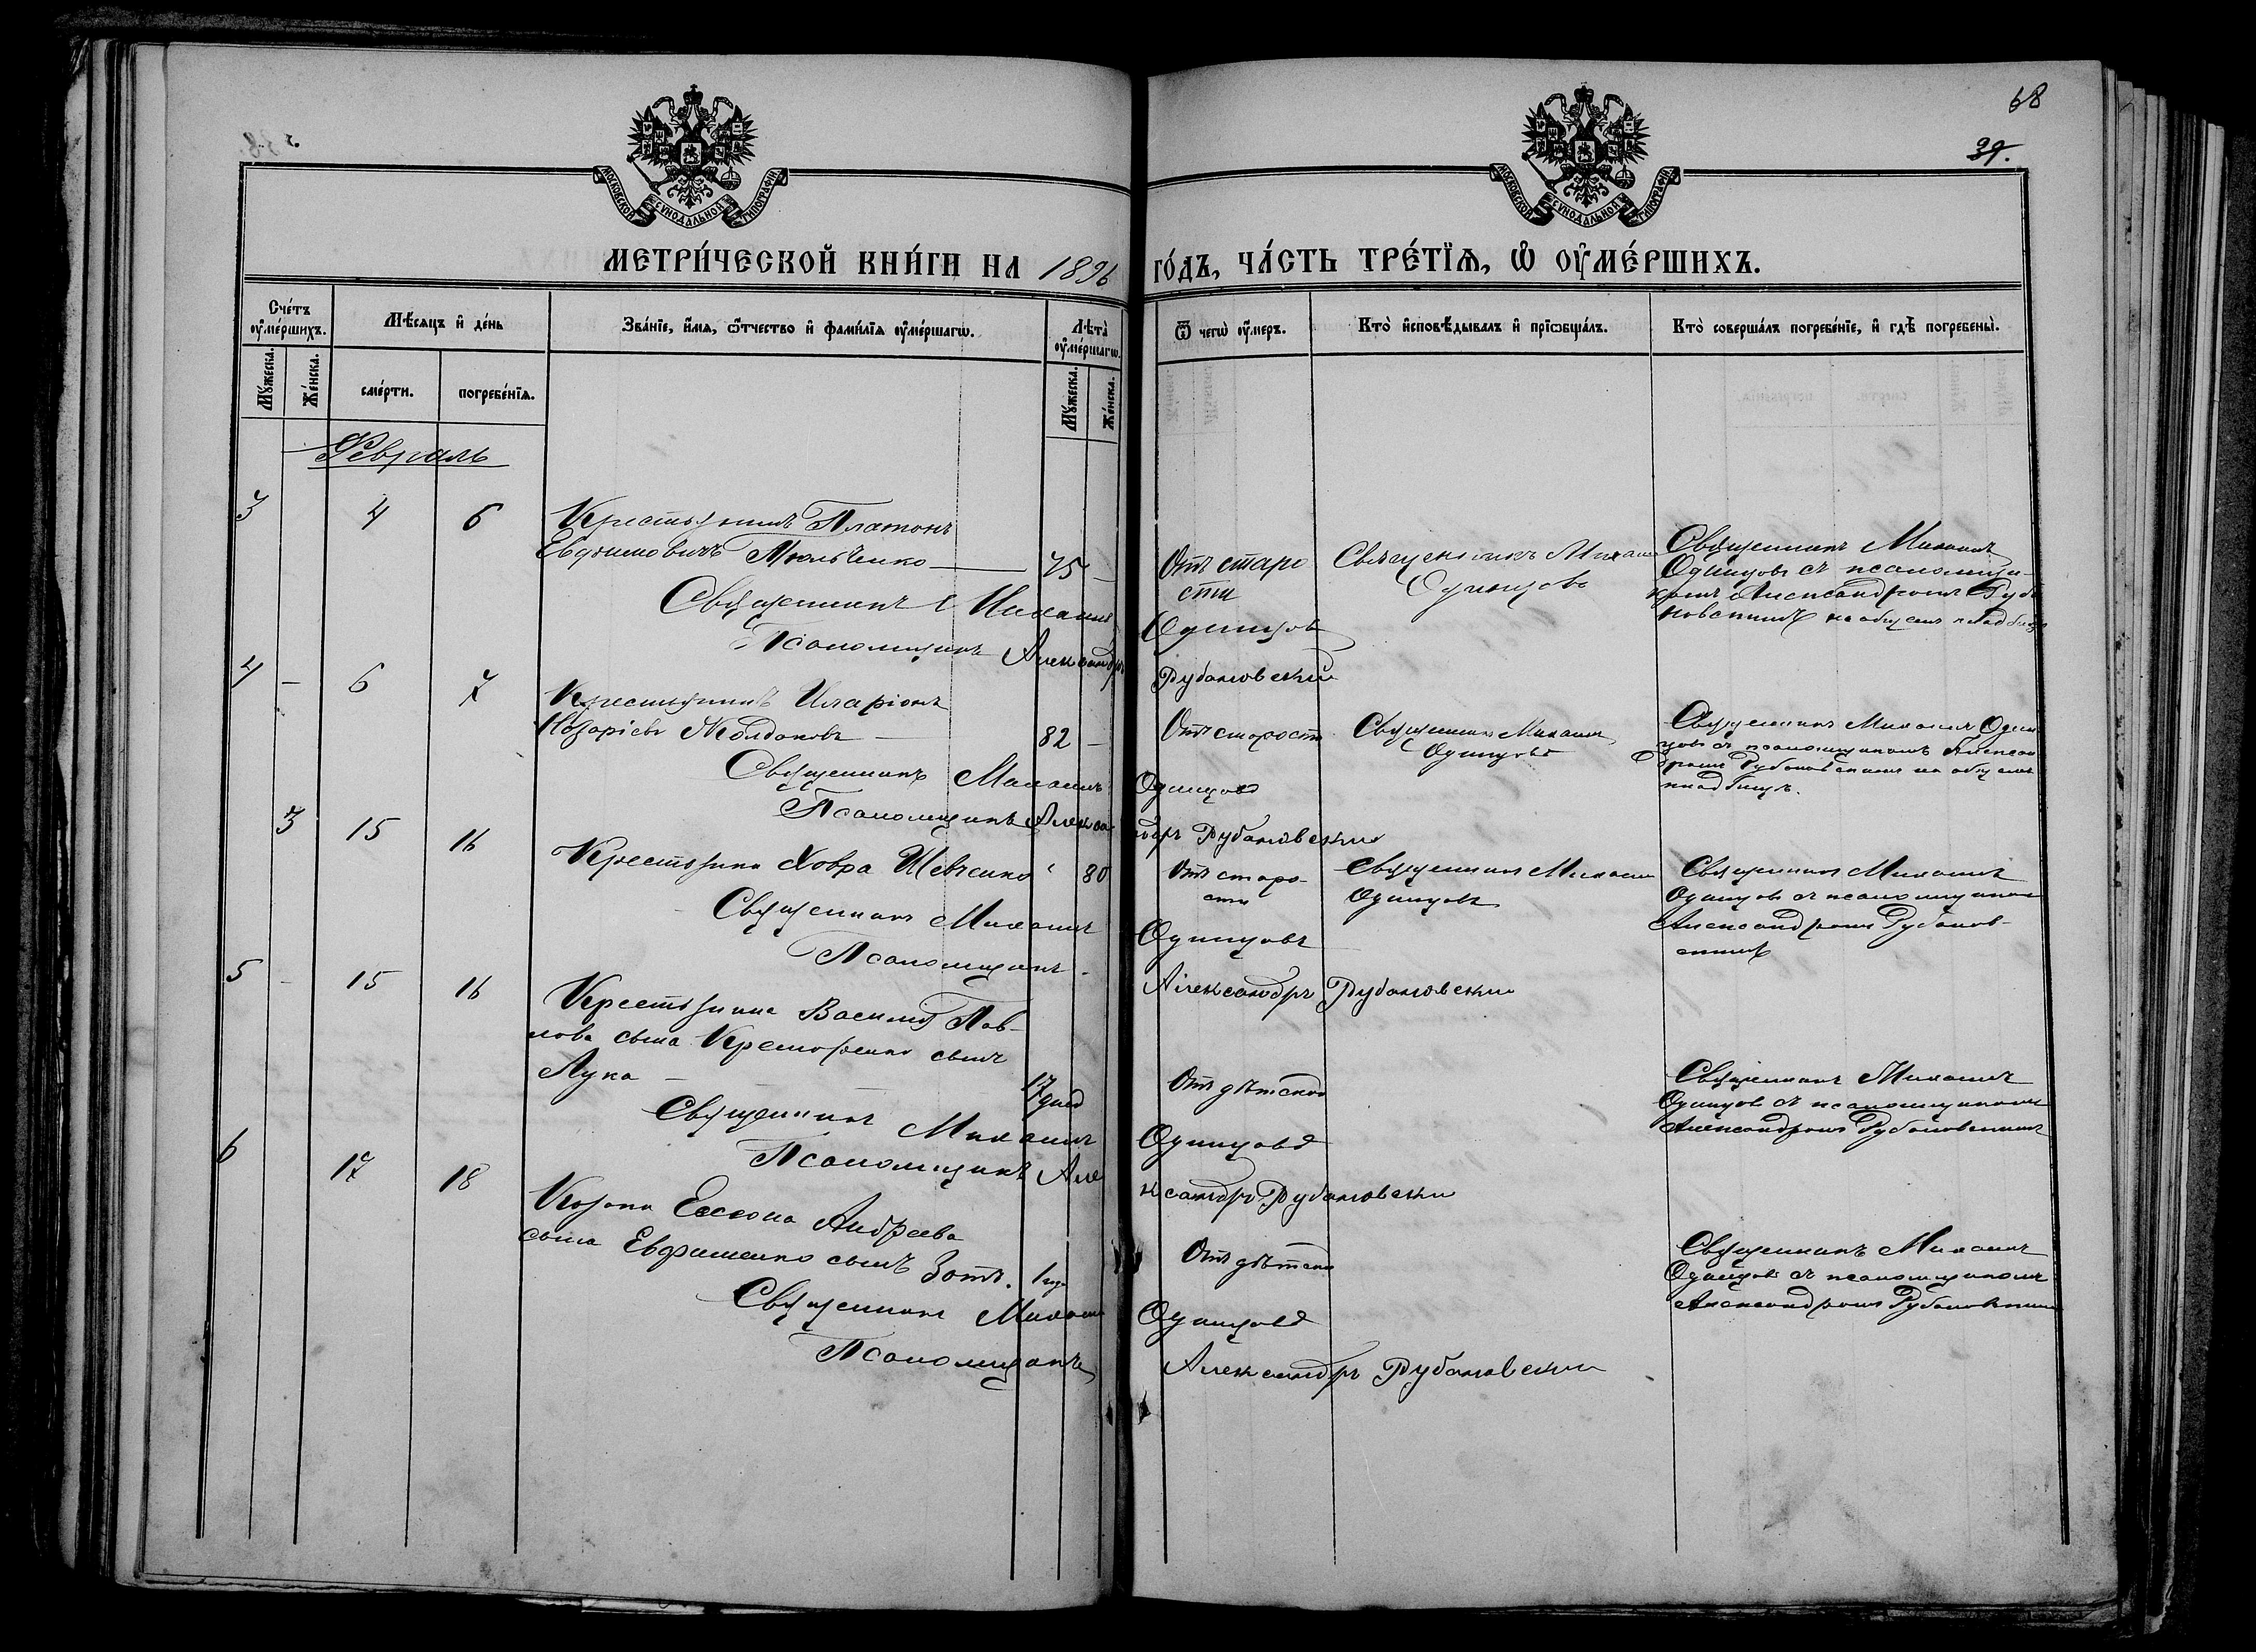 68
39.
МОСКОВСКОЙ СѴНОДАЛЬНОЙ ТИПОГРАФІИ
МОСКОВСКОЙ СѴНОДАЛЬНОЙ ТИПОГРАФІИ
МЕТРИ́ЧЕСКОЙ КНИ́ГИ НА 1896 ГО́ДЪ, ЧА́СТЬ ТРЕ́ТІѦ, Ѡ҆ ОУ҆МЕ́РШИХЪ.
Сче́тъ оу҆ме́ршихъ.
Мѣ́сяцъ и҆ де́нь
Зва́нїе, и҆́мя, ѻ҆́тчество и҆ фами́лїя оу҆ме́ршагѡ.
Лѣта̀ оу҆ме́ршагѡ.
Ѿ чегѡ̀ оу҆́меръ.
Кто̀ и҆сповѣ́дывалъ и҆ прїѡбща́лъ.
Кто̀ соверша́лъ погребе́нїе, и҆ гдѣ̀ погребены̀.
Мꙋ́жеска.
Же́нска.
сме́рти.
погребе́нїѧ.
Мꙋ́жеска.
Же́нска.
Февраль
3 4 6 Крестьянинъ Платонъ
Евфимовичъ 75 —
Отъ старо
сти
Священникъ Михаил
Одинцовъ
Священникъ Михаилъ
Одинцовъ съ псаломщи-
комъ Александромъ Руба
новскимъ на общемъ кладбищѣ
Священникъ Михаилъ Одинцов
Псаломщикъ Александръ Рубановскій
4 — 6 7 Крестьянинъ Иларіонъ
Назаріевъ Молдановъ — 82 —
Отъ старости
Священникъ Михаилъ
Одинцовъ
Священникъ Михаилъ Один
цовъ съ псаломщикомъ Алексан
дромъ Рубановскимъ на общемъ
кладбищѣ.
Священникъ Михаилъ Одинцовъ
Псаломщикъ Александръ Рубановскій
3 15 16 Крестьянка Хавра Шевченко 80
Отъ старо-
сти
Священникъ Михаил
Одинцовъ
Священникъ Михаилъ
Одинцовъ съ псаломщиком
Александромъ Рубанов-
скимъ
Священникъ Михаилъ Одинцовъ
Псаломщикъ Александръ Рубановскій
5 — 15 16 Крестьянина Василія Пав-
лова сына сынъ
Лука — 17 дней
Отъ дѣтской
Священникъ Михаилъ
Одинцовъ съ псаломщикомъ
Александромъ Рубановскимъ
Священникъ Михаилъ Одинцовъ
Псаломщикъ Александръ Рубановскій
6 17 18 Козака Андреева
сына Евфименко сынъ Зотъ. 1 года
Отъ дѣтской
Священникъ Михаилъ
Одинцовъ съ псаломщикомъ
Александромъ Рубановским
Священникъ Михаилъ Одинцовъ
Псаломщикъ Александръ Рубановскій